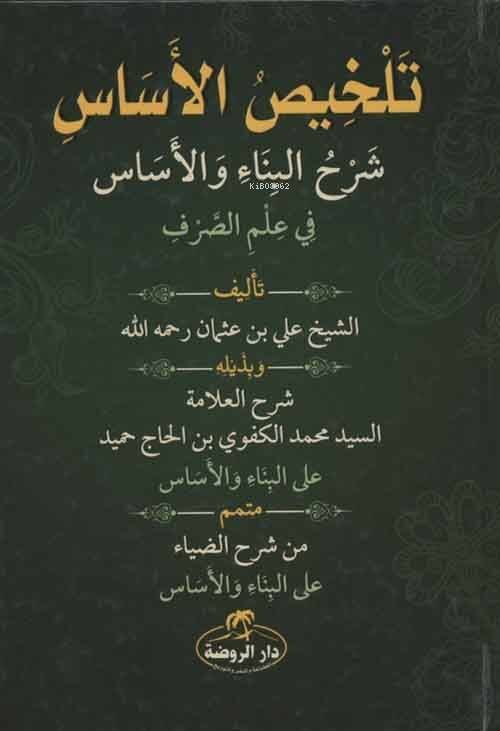 تَلْخِيصُ الأَسَاسِ
شَرْحُ البِنَاءِ وَالأَسَاسِ
KiB08962
فِي عِلْمِ الصَّرْفِ
تَأْلِيف
الشيخ علي بن عثمان رحمه الله
وَبِذَيْلِهِ
شرح العلامة
السيد محمد الكفوي بن الحاج حميد
على البِنَاءِ وَالأَسَاسِ
متمم
من شرح الضياء
على البِنَاءِ وَالأَسَاسِ
دار الروضة